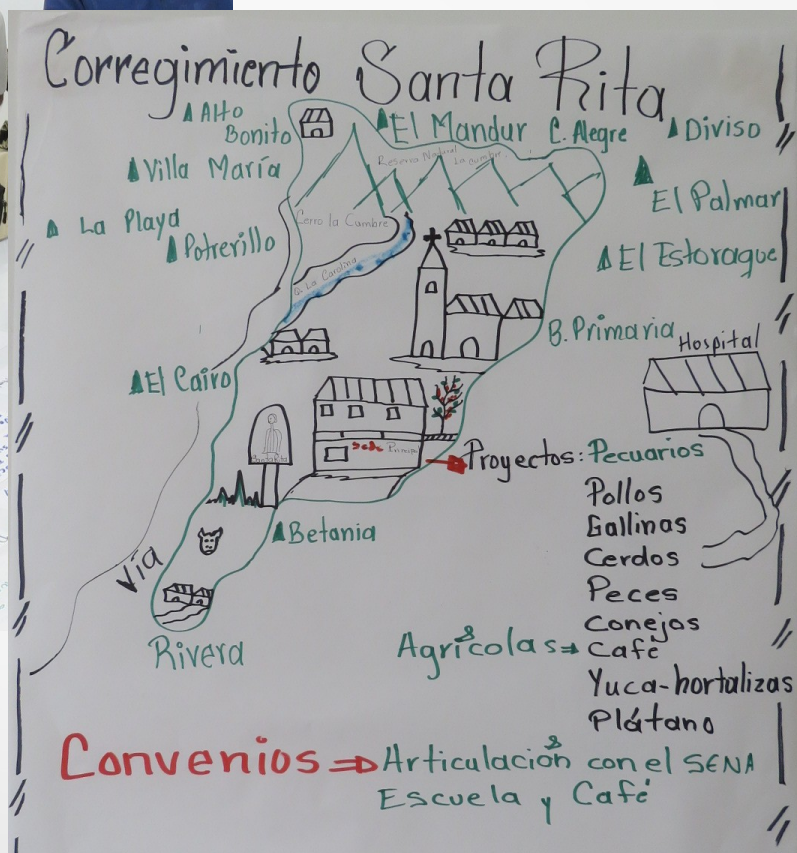 Corregimiento Santa Rita
Alto
Bonito
El Mandur
C. Alegre
Diviso
Villa María
Reserva Natural
La cumbre
El Palmar
La Playa
Potrerillo
Cerro la Cumbre
El Estoraque
Q. La Carolina
B. Primaria
Hospital
El Cairo
Sede Principal
Proyectos: Pecuarios
Pollos
Gallinas
Cerdos
Peces
Conejos
Betania
Vía
Rivera
Agrícolas → Café
Yuca-hortalizas
Plátano
Convenios ⇒ Articulación con el SENA
Escuela y Café